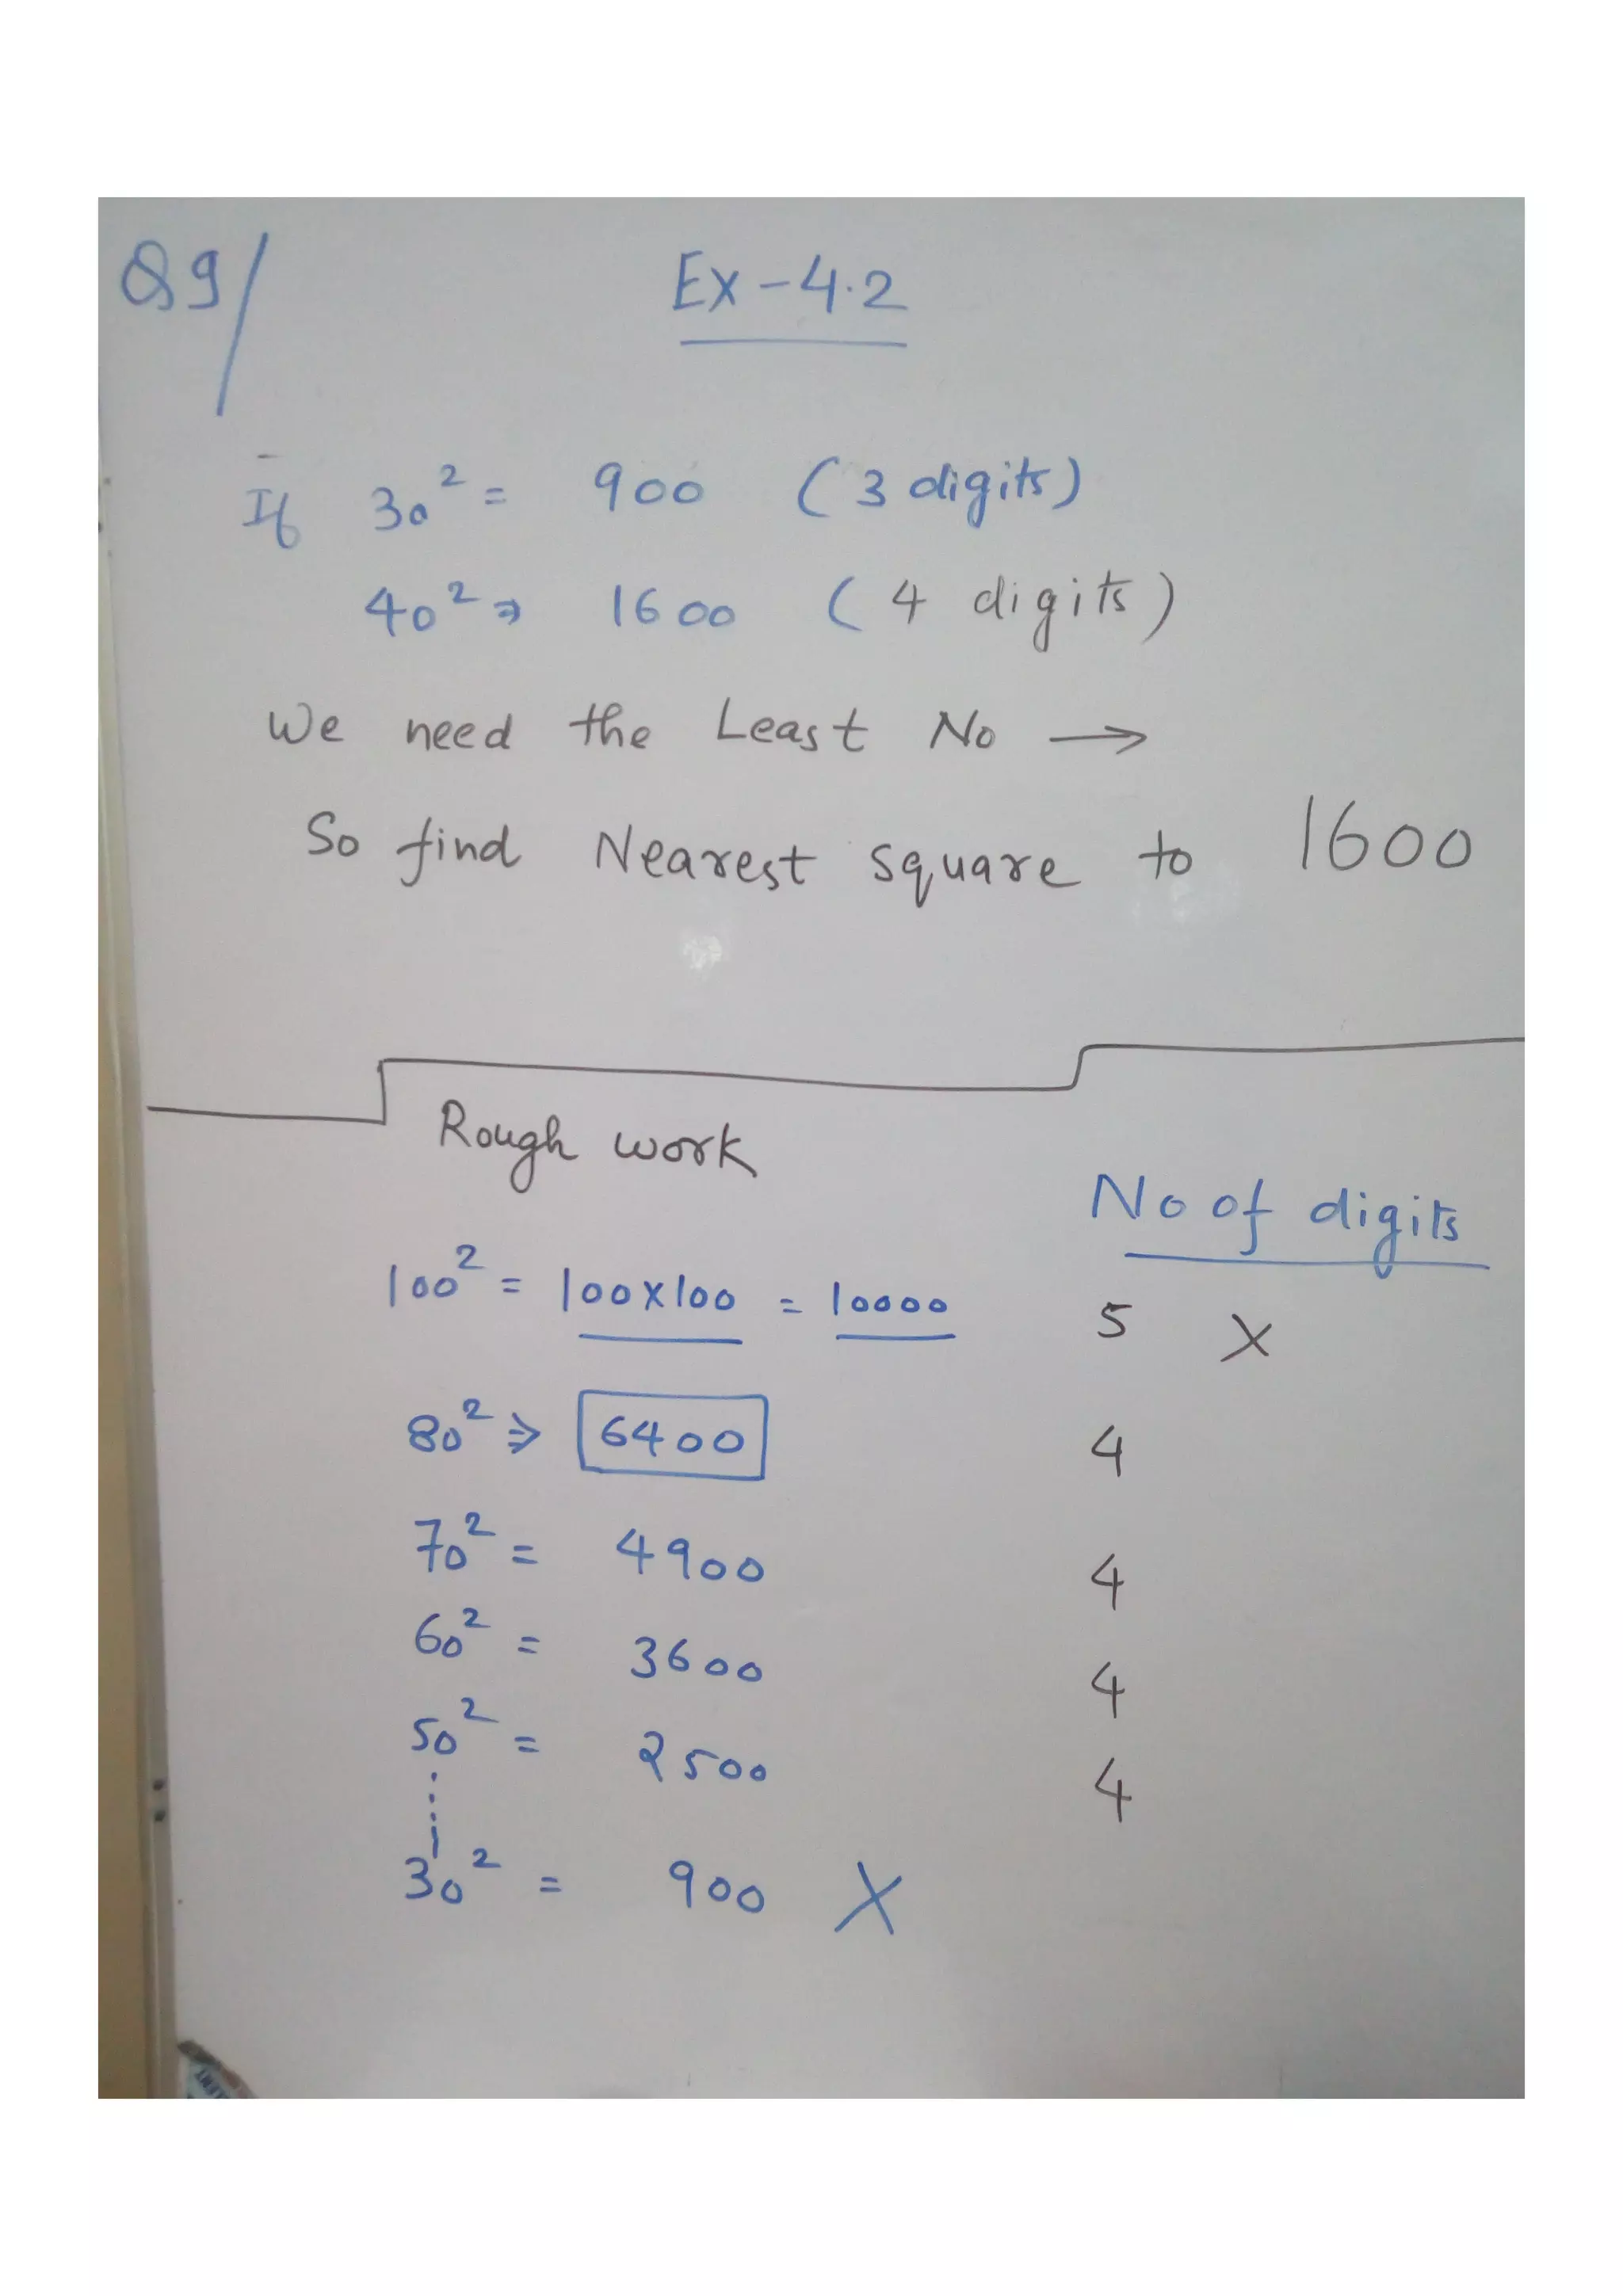 Q9/ Ex-4.2
If 30² = 900 (3 digits)
40² ⇒ 1600 (4 digits)
We need the Least No →
So find Nearest square to 1600
Rough work
No of digits
100² = 100x100 = 10000 5 X
80² ⇒ 6400 4
70² = 4900 4
60² = 3600 4
50² = 2500 4
30² = 900 X